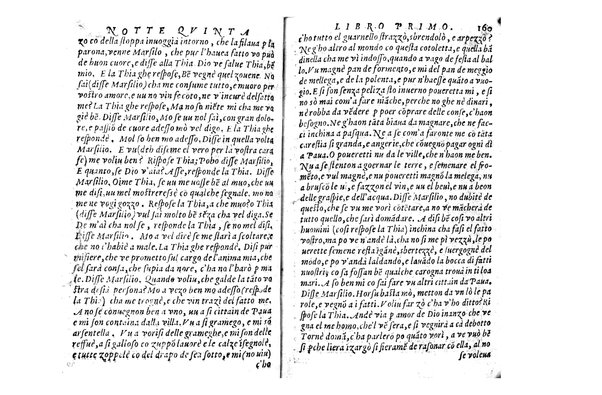 NOTTE QVINTA
zo co della stoppa inuoggia intorno, che la filaua p la
parona, venne Marsilio, che pur l'hauea fatto vuò
de buon cuore, e disse alla Thia. Dio ve salue Thia, bē
mio. E la Thia ghe respose, Bē vegnè quel zouene. No
sai (disse Marsilio) cha me consume tutto, e muoro per
vostro amore, e uu no vin fe conto, ne v'incurè delfatto
me? La Thia ghe respose, Ma no su niēte mi cha me vo
gia bē. Disse Marsilio, Mo se uu nol sai, con gran dolo-
re, e passiō de cuore adesso mò vel digo. E la Thia ghe
respondè. Mol so ben mo adesso. Disse in quella volta
Marsilio. E vu disìme el vero per la vostra ca
fè) me voliu ben? Rispose Thia; Pobò disse Marsilio,
E quanto, se Dio v'aia? Asse, respondè la Thia. Disse
Marsilio, Oime Thia, se uu me uosse bē al muo, che uu
me disì, uu mel mostressè co qualche segnale. mo no
me ne vogi gozzo. Respose la Thia, A che muo? o Thia
(disse Marsilio) vul sai molto bē sēza cha vel diga. Se
De m'aì cha nol sè, respondè la Thia, se no mel disì.
Disse Marsilio. Mo vel dirè se me starì a scoltare, e
che no c'habiè a male. La Thia ghe respondè, Disì pur
messiere, che ve prometto sul cargo dell'anima mia, che
sel sarà consa, che supia da nore, c'ha no l'harò p ma
le. Disse Marsilio, Quando voliu, che galde la tāto vo
stra destà persona? Mo a vezo ben mo adesso (resp. de
la Thia) cha me trognè, e che vin trazì del fatto me.
A no se conuegnon ben a vno, un a sì cittain de Paua
e mi son containa dalla villa. Vu a sì gramego, e mi sō
arsentella. Vu a vorisi delle grameghe, e mi son delle
resfuè, a sì galioso co zuppò lauorè e le calze sfegnolè,
e tutte zoppolè co del drapo de sea sotto, e mi (no viu)
c'ho
LIBRO PRIMO. 160
c'ho tutto el guarnello strazzò, sbrendolò, e arpezzò?
N e gh'ho altro al mondo co questa cotoletta, e quella bā
dinella cha me vì indosso, quando a vago de festa al bal
lo. Vu magnè pan de formento, e mi del pan de meggio
de mellega, e de la polenta, e pur n'haesse quāto a vuo-
gio. E si son senza peliza sto inuerno poueretta mi, e si
no sò mai com'a fare niāche, perche no ghe nè dinari,
nè robba da vēdere p poer còprare delle conse, c'haon
besogno. Ne ghaon tāta biana da magnare, che ne fac
ci inchina a pasqua. Ne a se com'a faronte co tāta
carestia sì granda, e angerie, che couegnò pagar ogni dì
a Paua. O poueretti nu da le ville, che n'haon me ben.
Nu a se stenton a goernar le terre, e semenare el fro-
mēto, e vu'l magnè, e nu poueretti magnò la melega, nu
a bruscò le uì, e fazzon el vin, e uu el beuì, e nu a beon
delle graspie, e dell'acqua. Disse Marsilio, no dubitè de
questo, che se vu me vorì còtētare, a no ve mācherà de
tutto quello, che sarì domādare. A disì bē così vu altri
huomini (così resposse la Thia) inchina cha fasì el fatto
vostro, ma po ve n'andè là, cha no si me pì vezzù, le po
ouerette semene resta ìgānè, sbertezzè, e luergognè del
modo, e po v'andì laldando, e lauādo la bocca di fatti
nuostri; co sa fossan bē qualche carogna trouà in ti loa
mari. A so ben mi co sai fare vu altri cittain da Paua.
Disse Marsilio. Horsu basta mò, metton da vn lò le pa
role, e vegnò a i fatti. Voliu far zò c'ha v'ho ditto? Ri
spose la Thia. Andè via p amor de Dio inanzo che ve
gna el me homo, che'l vē sera, e si vegnirà a cà debotto
Tornè domā, c'ha parlero po quāto vorì, a ve vuò bē
sì p che liera izargò sì fieramē de rasonar cò ella, al no
se voleua